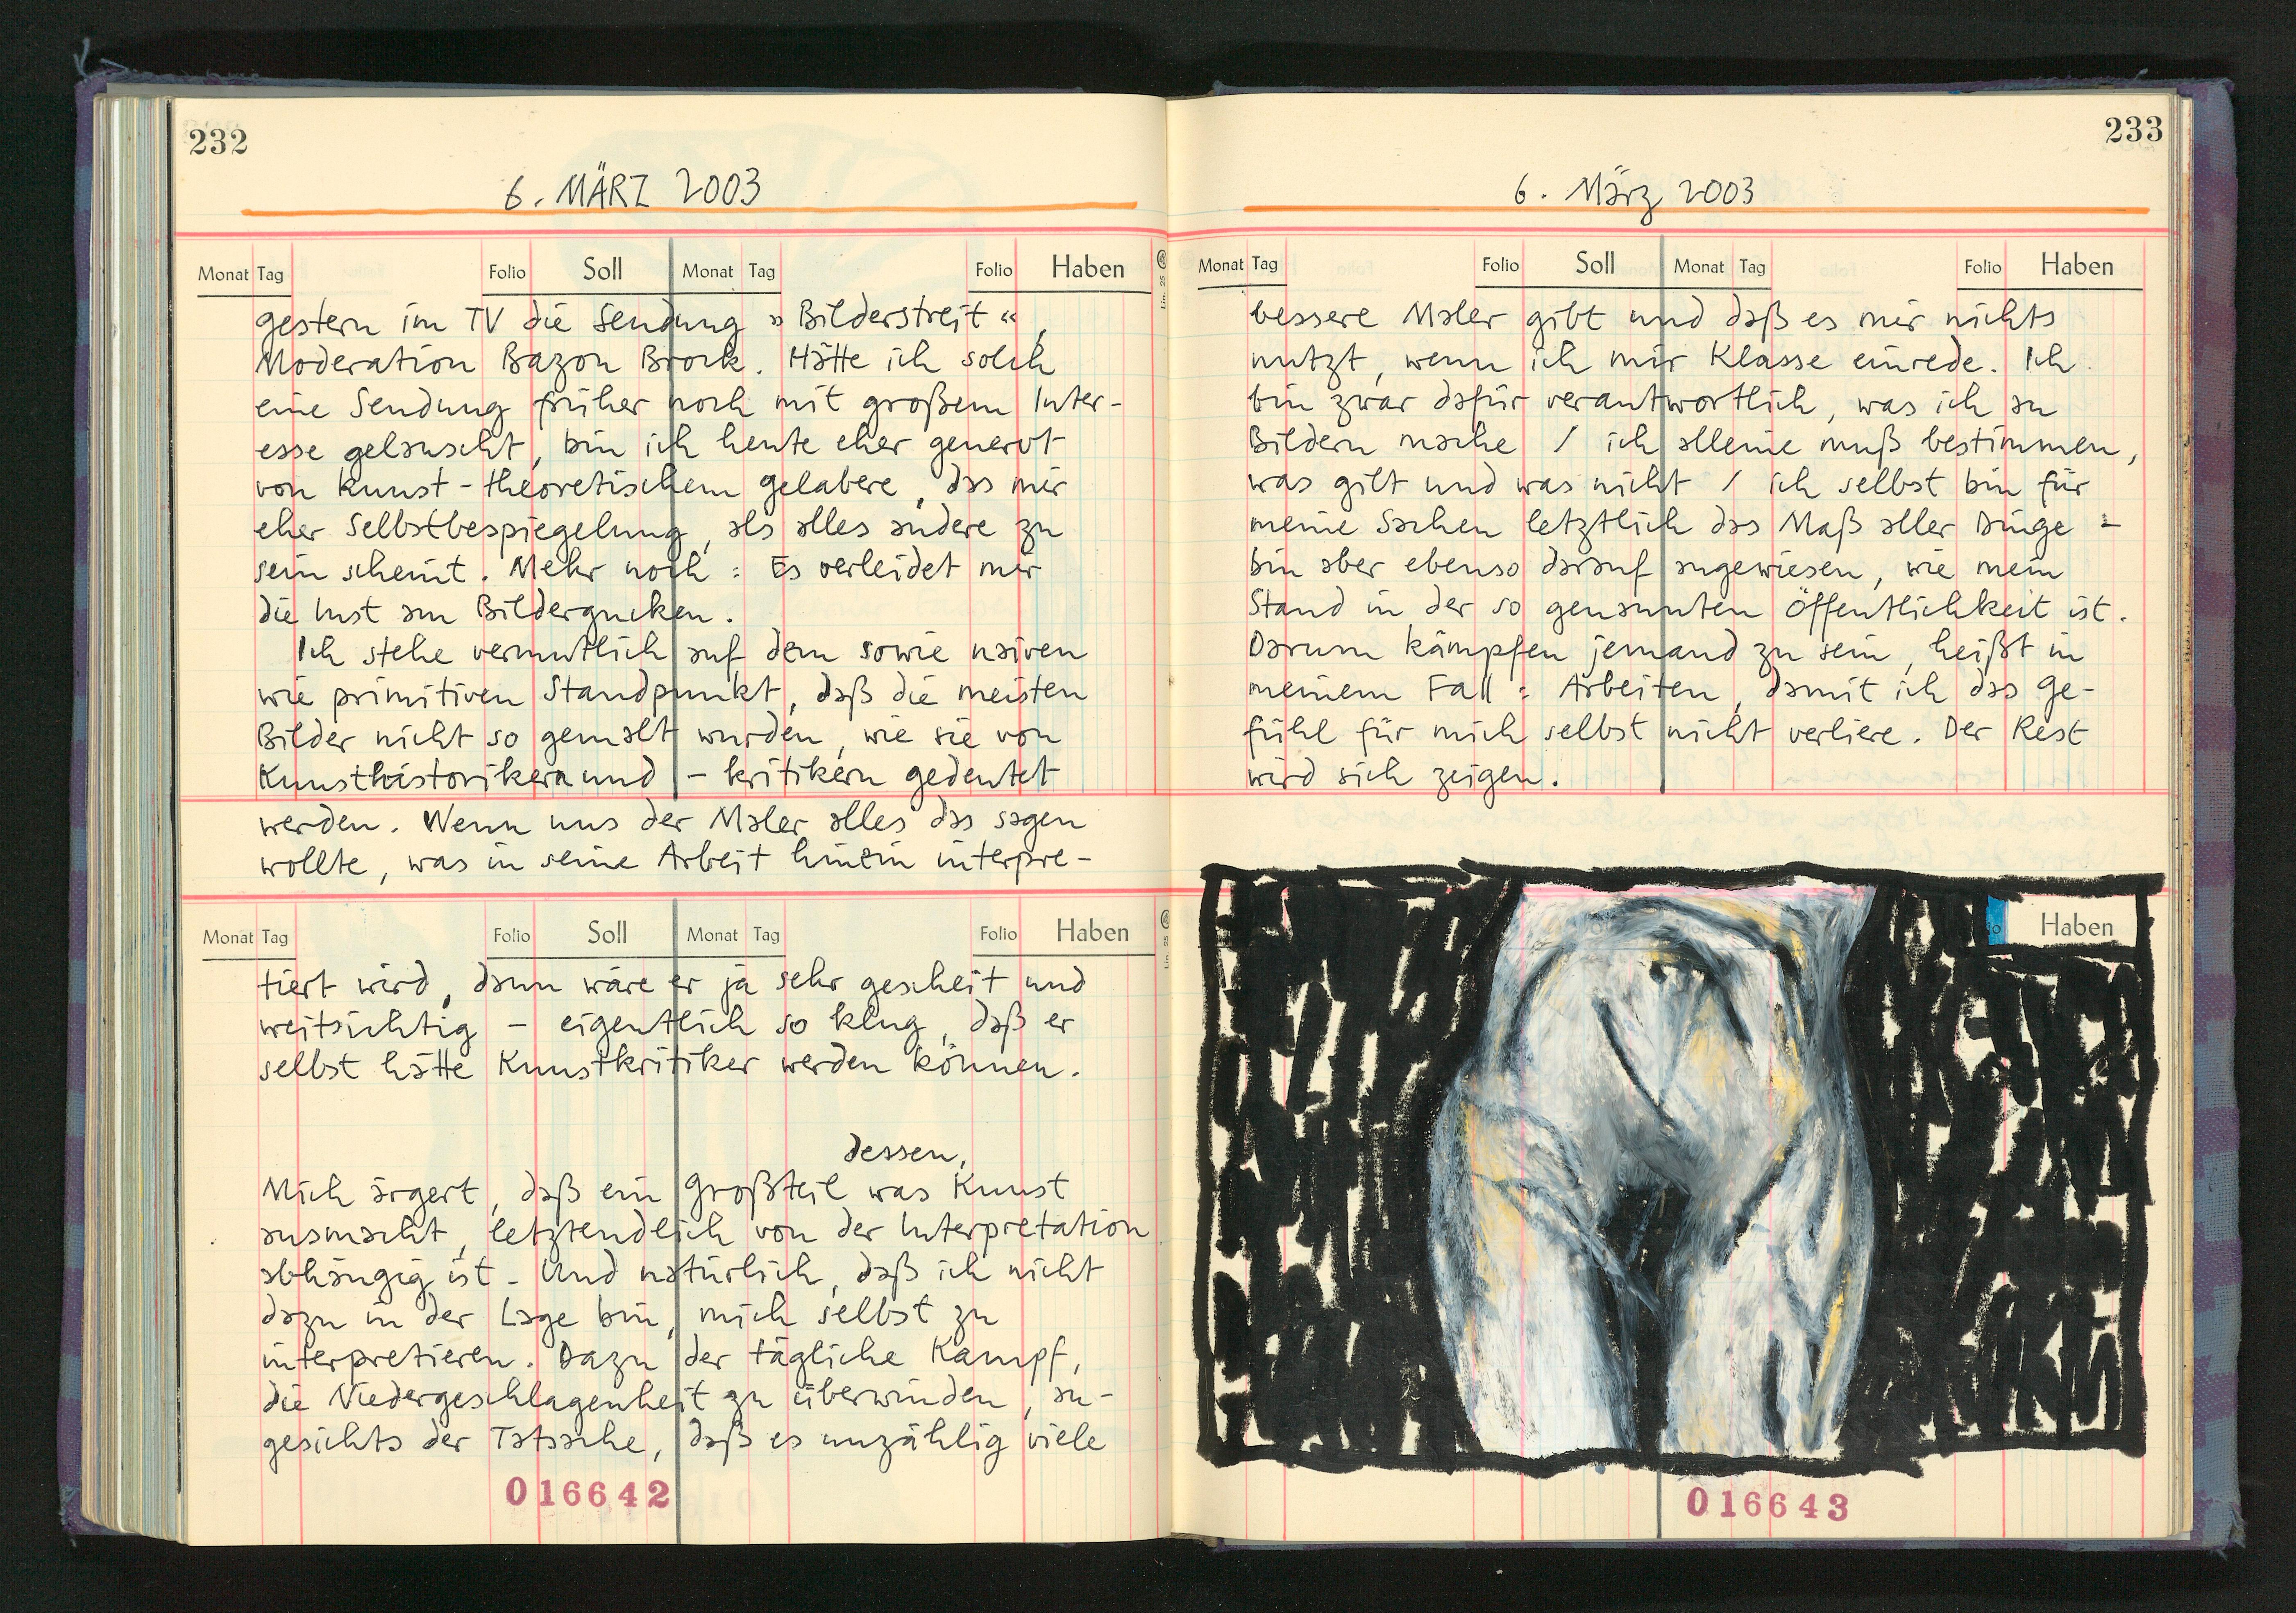 232
6. MÄRZ 2003
Monat Tag Folio Soll Monat Tag Folio Haben
gestern im TV die Sendung »Bilderstreit«,
Moderation Bazon Brock. Hätte ich solch
eine Sendung früher noch mit großem Inter-
esse gelauscht, bin ich heute eher genervt
von Kunst-theoretischem gelabere, das mir
eher Selbstbespiegelung, als alles andere zu
sein scheint. Mehr noch: Es verleidet mir
die Lust am Bildergucken.
Ich stehe vermutlich auf dem sowie naiven
wie primitiven Standpunkt, daß die meisten
Bilder nicht so gemalt wurden, wie sie von
Kunsthistorikern und -kritikern gedeutet
werden. Wenn uns der Maler alles das sagen
wollte, was in seine Arbeit hinein interpre-
Monat Tag Folio Soll Monat Tag Folio Haben
tiert wird, dann wäre er ja sehr gescheit und
weitsichtig - eigentlich so klug, daß er
selbst hätte Kunstkritiker werden können.
dessen,
Mich ärgert, daß ein Großteil was Kunst
ausmacht, letztendlich von der Interpretation
abhängig ist. Und natürlich, daß ich nicht
dazu in der Lage bin, mich selbst zu
interpretieren. Dazu der tägliche Kampf,
die Niedergeschlagenheit zu überwinden, an-
gesichts der Tatsache, daß es unzählig viele
016642
233
6. März 2003
Monat Tag Folio Soll Monat Tag Folio Haben
bessere Maler gibt und daß es mir nichts
nutzt, wenn ich mir Klasse einrede. Ich
bin zwar dafür verantwortlich, was ich an
Bildern mache / ich alleine muß bestimmen,
was gilt und was nicht / ich selbst bin für
meine Sachen letztlich das Maß aller Dinge -
bin aber ebenso darauf angewiesen, wie mein
Stand in der so genannten Öffentlichkeit ist.
Darum kämpfen jemand zu sein, heißt in
meinem Fall: Arbeiten, damit ich das Ge-
fühl für mich selbst nicht verliere. Der Rest
wird sich zeigen.
Haben
016643